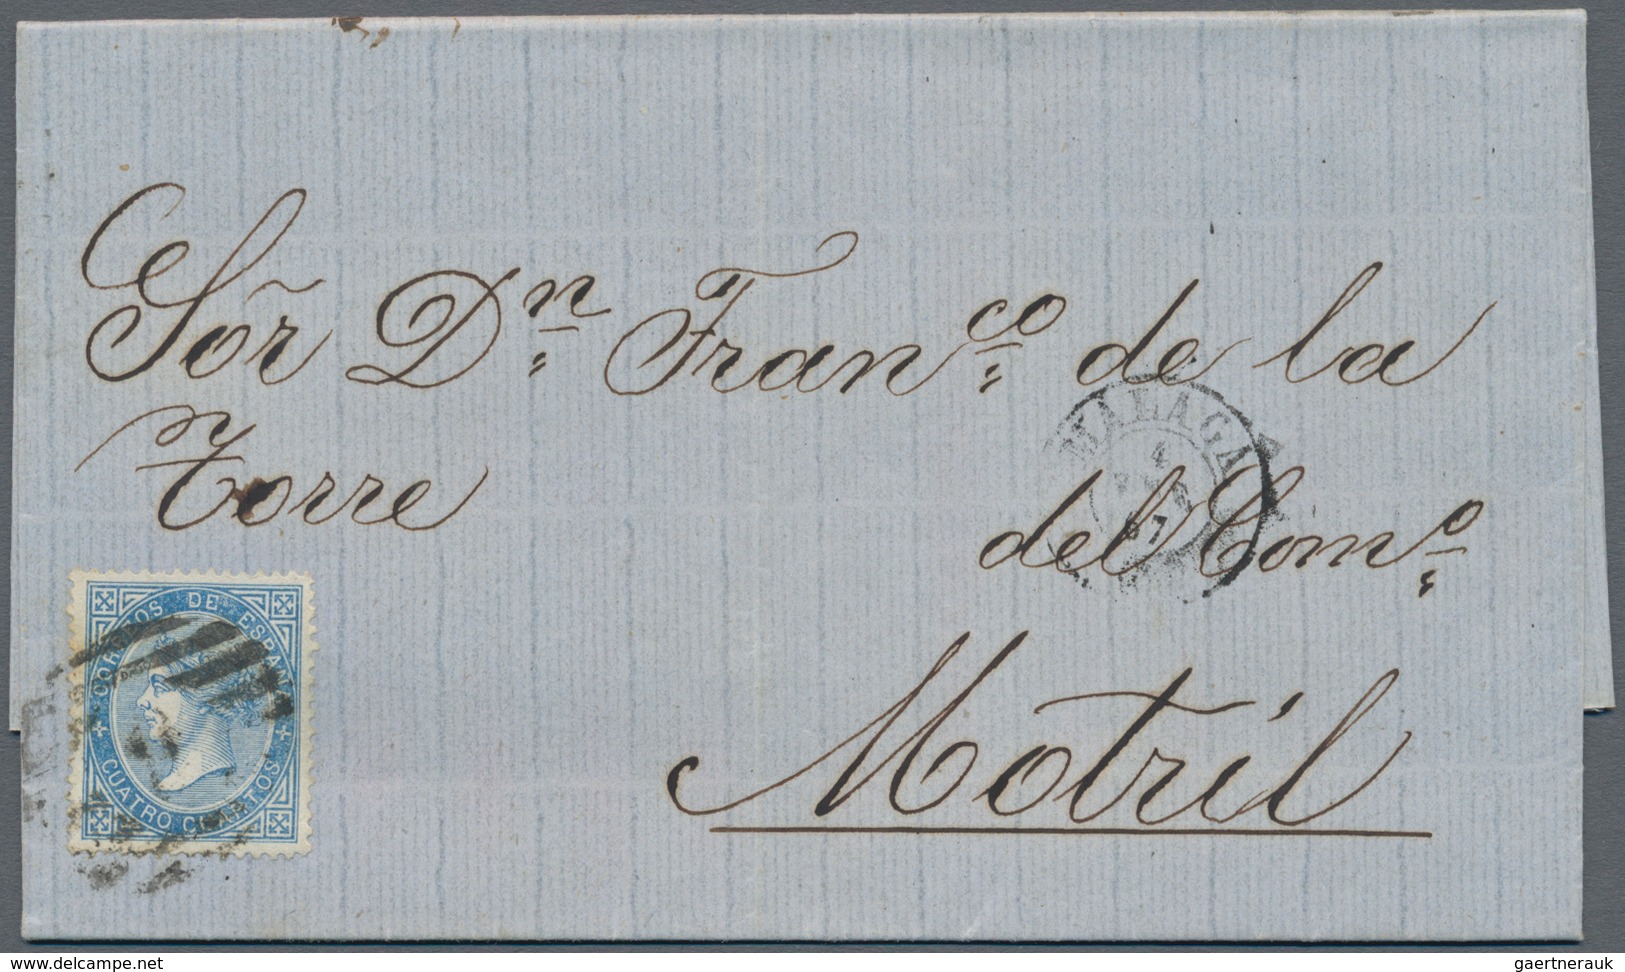 Sõr Dⁿ Franᶜᵒ de la
Torre
del Comᵒ
Motril
MALAGA
4
67
CORREOS DE ESPAÑA
CUATRO CUARTOS
delcampe.net
gaertnerauk